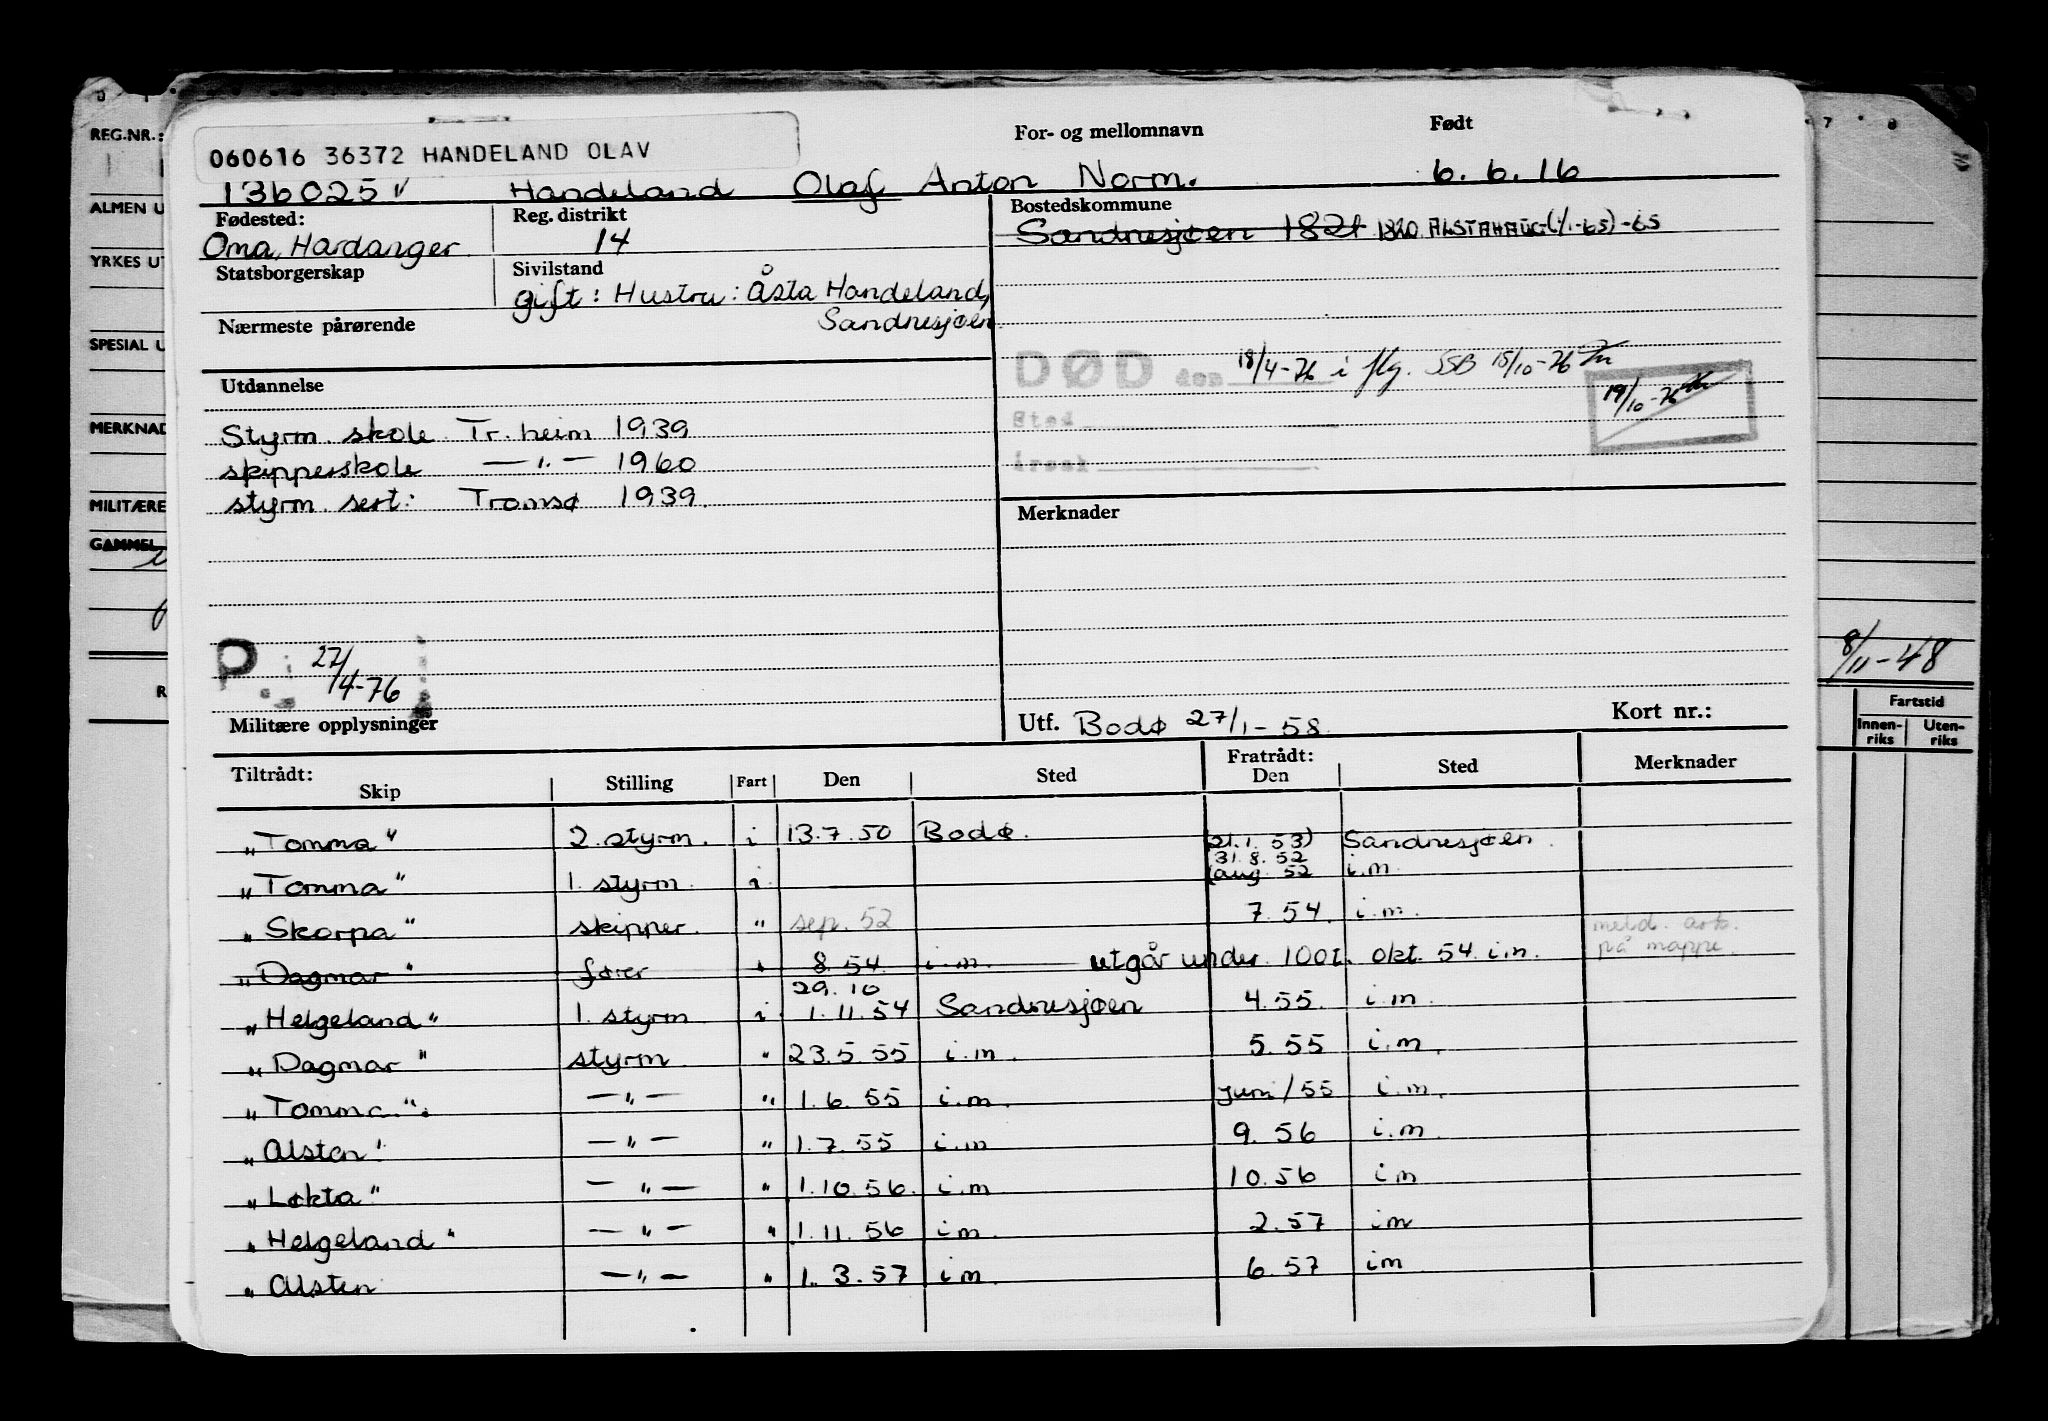 REG.NR.:
ALMEN U
YRKES UT
SPESIAL U
MERKNAD
MILITÆRE
GAMMEL
R
060616 36372 HANDELAND OLAV
For- og mellomnavn Født
136025 v Handeland Olaf Anton Norm. 6.6.16
Fødested: Reg. distrikt Bostedskommune
Oma, Hardanger 14 Sandnesjøen 1821 1820 ALSTAHAUG (1/1-65)-65
Statsborgerskap Sivilstand
gift: Hustru: Åsta Handeland,
Sandnesjøen
Nærmeste pårørende
DØD den 18/4-76 i flg. SSB 15/10-76
19/10-76
Sted
årsak
Utdannelse
Styrm. skole Tr.heim 1939
skipperskole —"— 1960
styrm. sert: Tromsø 1939.
Merknader
P. 27/4-76
8/11-48
Militære opplysninger
Utf. Bodø 27/1-58. Kort nr.:
Fartstid
Innen-riks Uten-riks
Tiltrådt: Fratrådt:
Skip Stilling Fart Den Sted Den Sted Merknader
"Tomma" 2. styrm. i 13.7.50 Bodø. (21.1.53) Sandnesjøen.
31.8.52
"Tomma" 1. styrm. i (aug. 52 i.m.
"Skorpa" skipper. " sep. 52 7.54. i.m.
meld. arb.
på mappe.
"Dagmar" fører i 8.54 i.m. utgår under 100t. okt. 54 i.m.
29.10
"Helgeland" 1. styrm i 1.11.54 Sandnesjøen 4.55. i.m.
"Dagmar" styrm " 23.5.55 i.m. 5.55 i.m.
"Tomma". —"— " 1.6.55 i.m. juni/55 i.m.
"Alsten" —"— " 1.7.55 i.m 9.56 i.m.
"Løkta" —"— " 1.10.56. i.m 10.56 i m
"Helgeland" —"— " 1.11.56 i m. 2.57 i m
"Alsten —"— " 1.3.57 i m. 6.57 i m